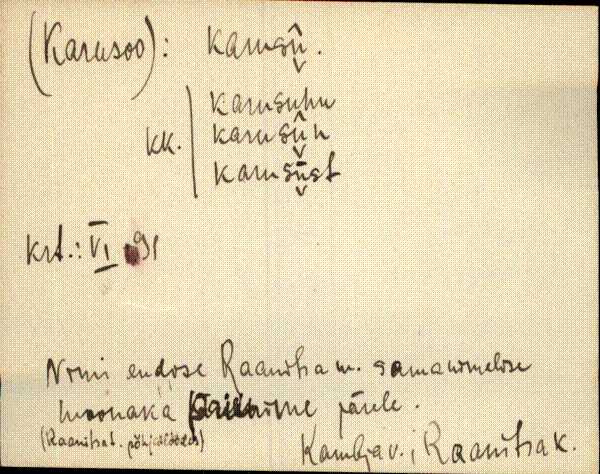 (Karusoo): karusû̬.
karusuhu
kk. karusû̬n
karusū̬st
krt.: VI 91
Nimi endise Raanitsa m. samanimelise
moonaka järele.
(Raanitsat. põhja
Kambja v., Raanitsa k.